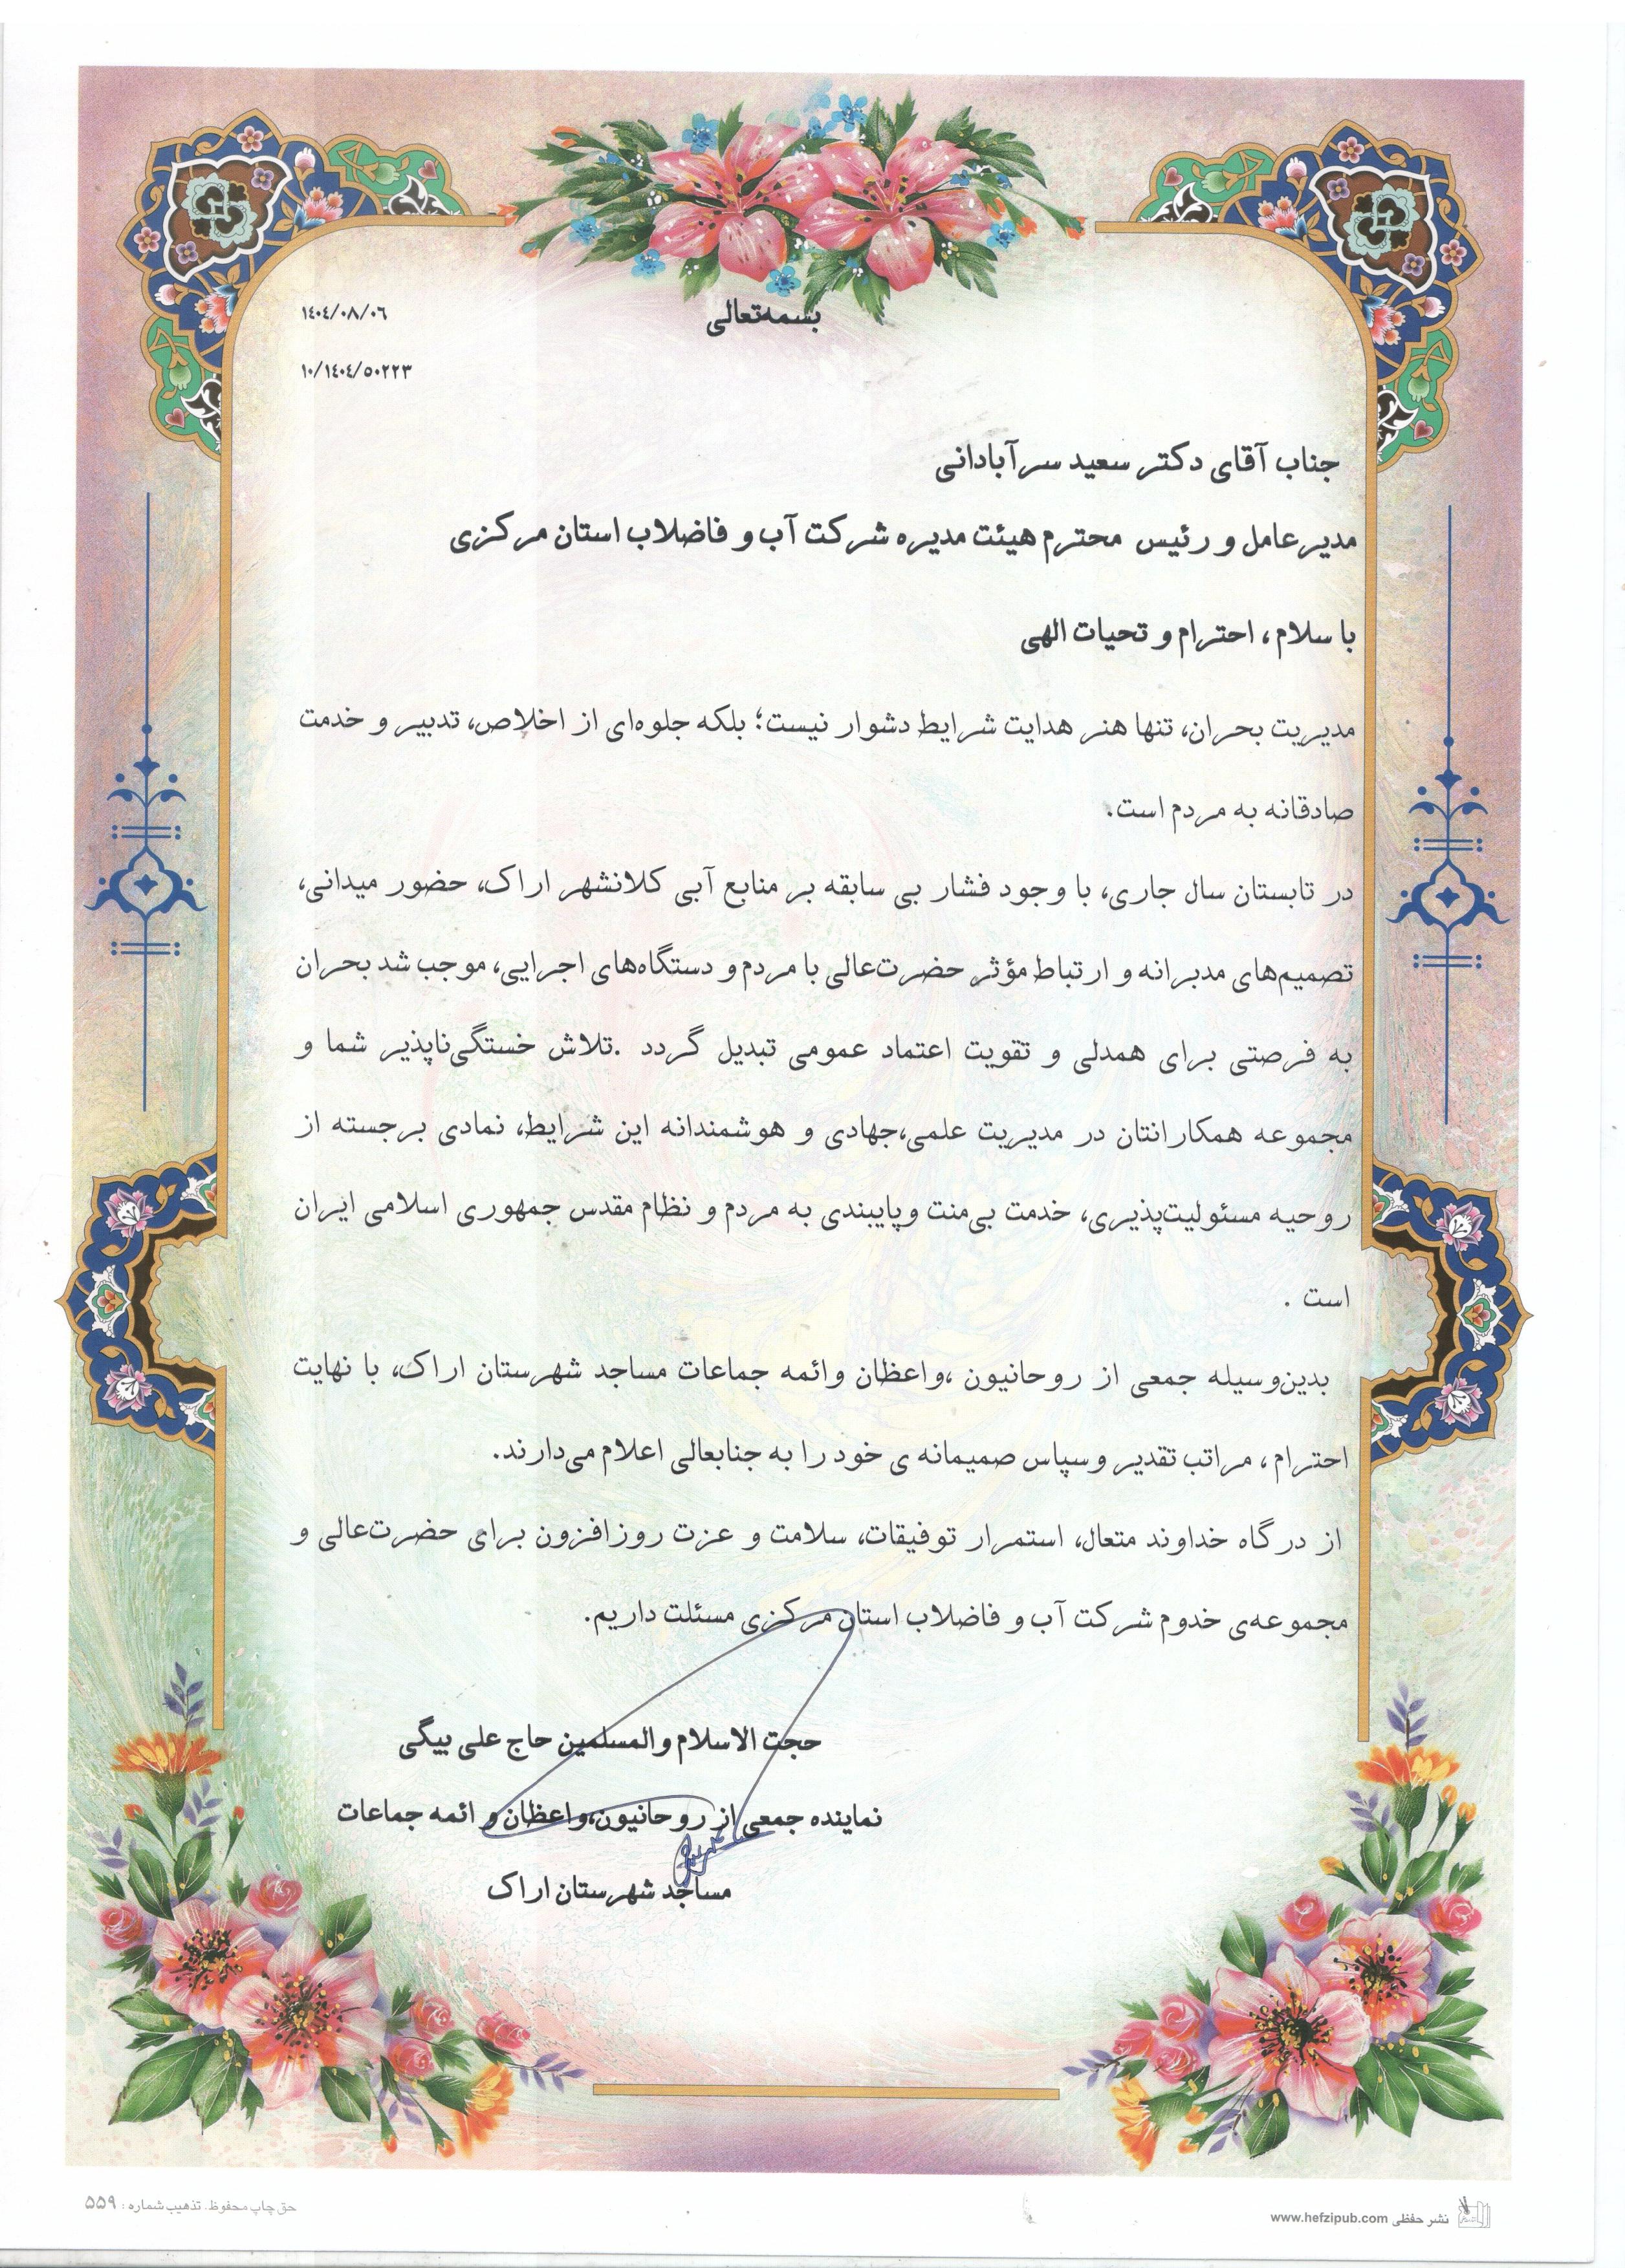 بسمه‌تعالی
۱۴۰۴/۰۸/۰۶
۱۰/۱۴۰۴/۵۰۲۲۳
جناب آقای دکتر سعید سرآبادانی
مدیرعامل و رئیس محترم هیئت مدیره شرکت آب و فاضلاب استان مرکزی
با سلام، احترام و تحیات الهی
مدیریت بحران، تنها هنر هدایت شرایط دشوار نیست؛ بلکه جلوه‌ای از اخلاص، تدبیر و خدمت
صادقانه به مردم است.
در تابستان سال جاری، با وجود فشار بی سابقه بر منابع آبی کلانشهر اراک، حضور میدانی،
تصمیم‌های مدبرانه و ارتباط مؤثر حضرت‌عالی با مردم و دستگاه‌های اجرایی، موجب شد بحران
به فرصتی برای همدلی و تقویت اعتماد عمومی تبدیل گردد .تلاش خستگی‌ناپذیر شما و
مجموعه همکارانتان در مدیریت علمی،جهادی و هوشمندانه این شرایط، نمادی برجسته از
روحیه مسئولیت‌پذیری، خدمت بی‌منت وپایبندی به مردم و نظام مقدس جمهوری اسلامی ایران
است .
بدین‌وسیله جمعی از روحانیون ،واعظان وائمه جماعات مساجد شهرستان اراک، با نهایت
احترام ، مراتب تقدیر وسپاس صمیمانه ی خود را به جنابعالی اعلام می‌دارند.
از درگاه خداوند متعال، استمرار توفیقات، سلامت و عزت روزافزون برای حضرت‌عالی و
مجموعه‌ی خدوم شرکت آب و فاضلاب استان مرکزی مسئلت داریم.
حجت الاسلام والمسلمین حاج علی بیگی
نماینده جمعی از روحانیون،واعظان و ائمه جماعات
مساجد شهرستان اراک
نشر حفظی www.hefzipub.com
حق چاپ محفوظ. تذهیب شماره : ۵۵۹